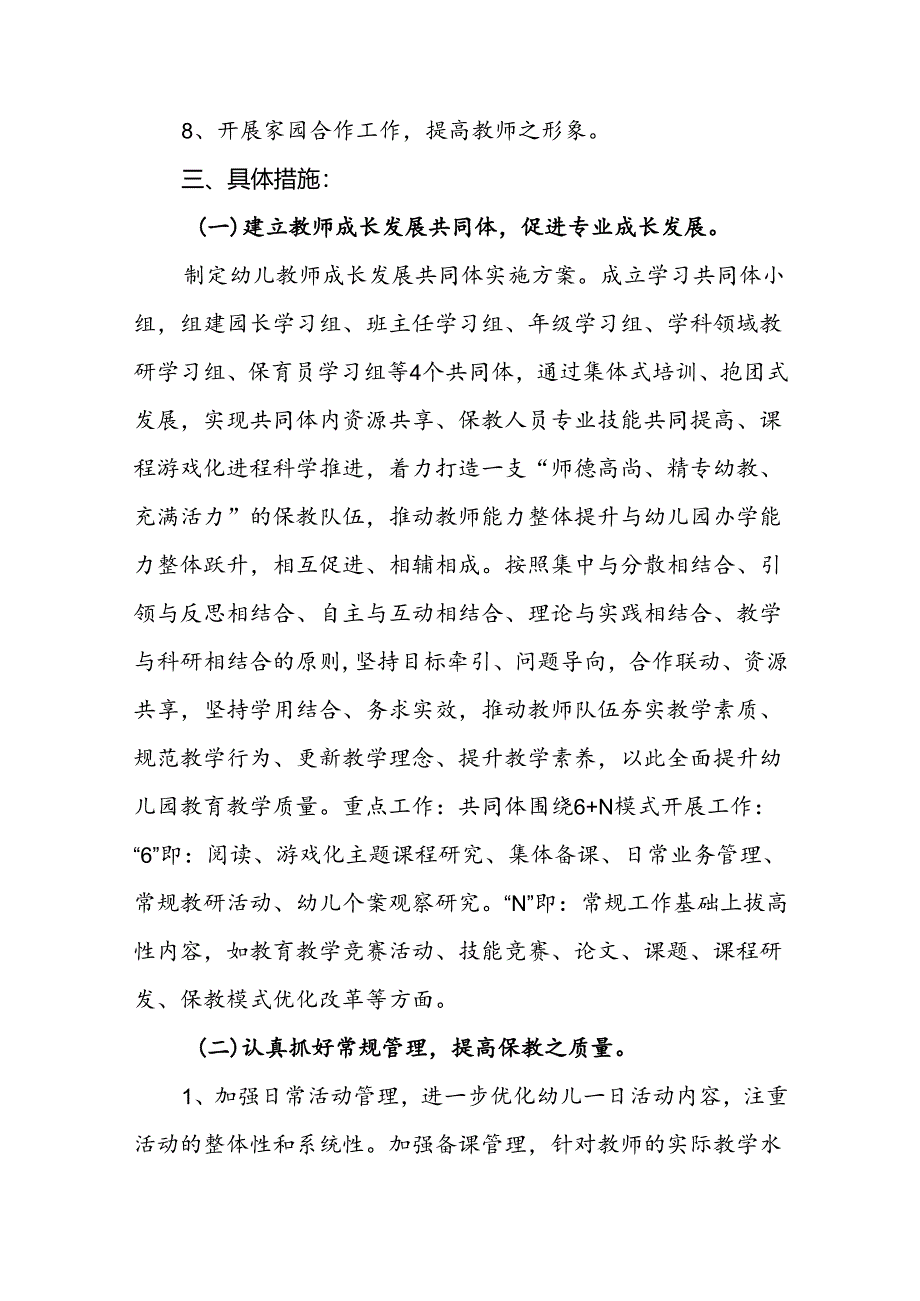 8、开展家园合作工作，提高教师之形象。
三、具体措施：
(一)建立教师成长发展共同体，促进专业成长发展。
制定幼儿教师成长发展共同体实施方案。成立学习共同体小
组，组建园长学习组、班主任学习组、年级学习组、学科领域教
研学习组、保育员学习组等4个共同体，通过集体式培训、抱团式
发展，实现共同体内资源共享、保教人员专业技能共同提高、课
程游戏化进程科学推进，着力打造一支“师德高尚、精专幼教、
充满活力”的保教队伍，推动教师能力整体提升与幼儿园办学能
力整体跃升，相互促进、相辅相成。按照集中与分散相结合、引
领与反思相结合、自主与互动相结合、理论与实践相结合、教学
与科研相结合的原则,坚持目标牵引、问题导向，合作联动、资源
共享，坚持学用结合、务求实效，推动教师队伍夯实教学素质、
规范教学行为、更新教学理念、提升教学素养，以此全面提升幼
儿园教育教学质量。重点工作：共同体围绕6+N模式开展工作：
“6”即：阅读、游戏化主题课程研究、集体备课、日常业务管理、
常规教研活动、幼儿个案观察研究。“N”即：常规工作基础上拔高
性内容，如教育教学竞赛活动、技能竞赛、论文、课题、课程研
发、保教模式优化改革等方面。
(二)认真抓好常规管理，提高保教之质量。
1、加强日常活动管理，进一步优化幼儿一日活动内容，注重
活动的整体性和系统性。加强备课管理，针对教师的实际教学水